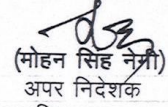 (मोहन सिंह नेगी)
अपर निदेशक